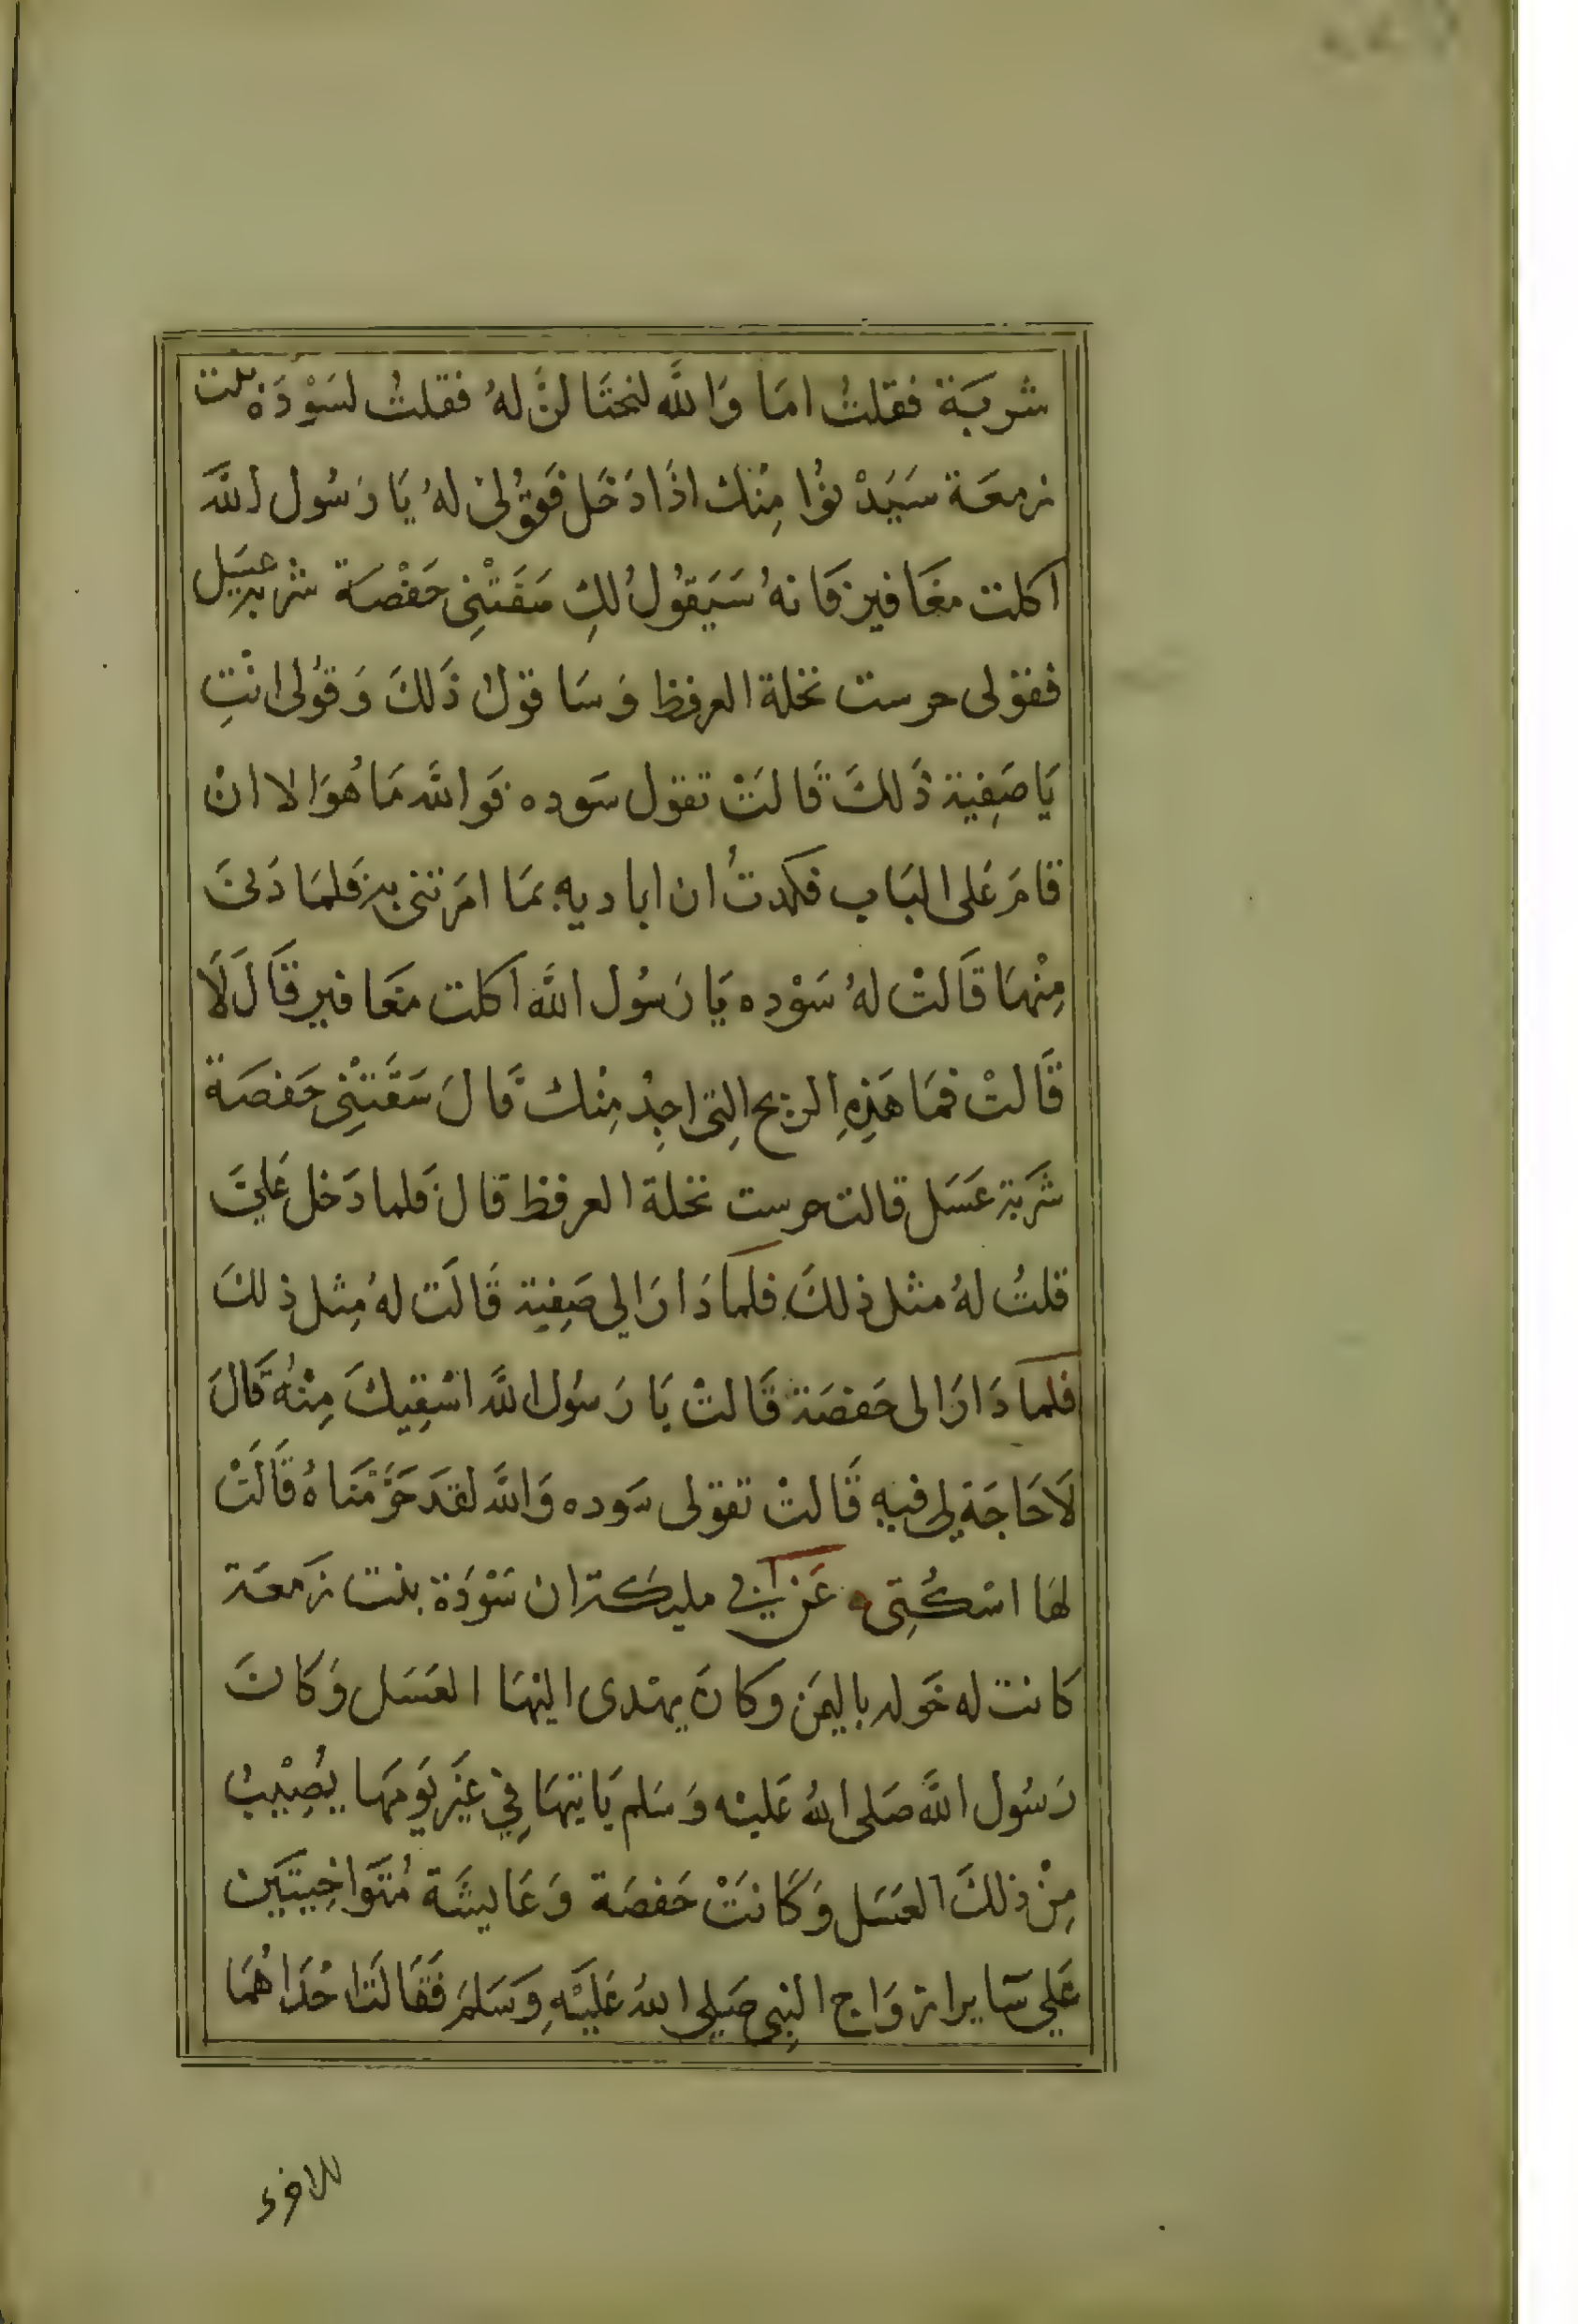 شربَة فقلتُ امَا وَاللَّه لنحتَا لنَّ لهُ فقلتُ لسَوْدَة بنت
زمعَة سَيَدْنوُا مِنْك اذَا دَخَل فَقوُلىْ لهُ يَا رَسُول اللَّه
اكلت مغَافير فَانهُ سَيَقوُلُ لكِ سَقَتْنِى حَفْصَة شربة عسَل
فقولى جرست نخلة العرفظ وَسَا قولُ ذَلكَ وَقوُلى انْتِ
يَا صَفِية ذَلكَ قَالتْ تقول سَوده فَوالله مَا هُوَ الا انْ
قامَ عَلى البَاب فكدتُ ان اباديه بمَا امَرتنى به فلمَا دَنىَ
مِنْهَا قَالتْ لهُ سَوْده يَا رَسُول اللَّه اكلت مغَافير قَالَ لَا
قَالتْ فمَا هَذِهِ الريح التِى اجِدُ مِنْك قَالَ سَقَتْنِى حَفصَة
شَربَة عَسَل قالت جرست نخلة العرفظ قالَ فَلما دَخل عَليَّ
قلتُ لهُ مثل ذلكَ فلما دَارَ الى صَفِية قَالَت لهُ مِثل ذلكَ
فلما دَارَ الى حَفصَة قَالتْ يَا رَسُول اللَّه اسْقِيكَ مِنْهُ قَالَ
لَا حَاجَة لى فيهِ قَالتْ تقولى سَوده وَاللَّه لقد حَرَّمْنَاهُ قَالَتْ
لهَا اسْكُتِى عَن ابن ابى مليكة ان سَوْدَة بنت زَمعَة
كانت له خَوله باليمَن وكانَ يهْدى اليْهَا العَسَل وَكانَ
رَسُول اللَّه صَلى اللهُ عَليْه وَسَلم يَاتيْهَا فِي غيَر يَومهَا يُصِيْبُ
مِنْ ذلكَ العَسَل وَكَانَتْ حَفصَة وَعَايشَة مُتَوَاخِيتَين
عَلي سَاير ازوَاج النبِى صَلي اللهُ عَليْهِ وَسَلمَ فقَالَتْ احْدَاهُمَا
للاخرى